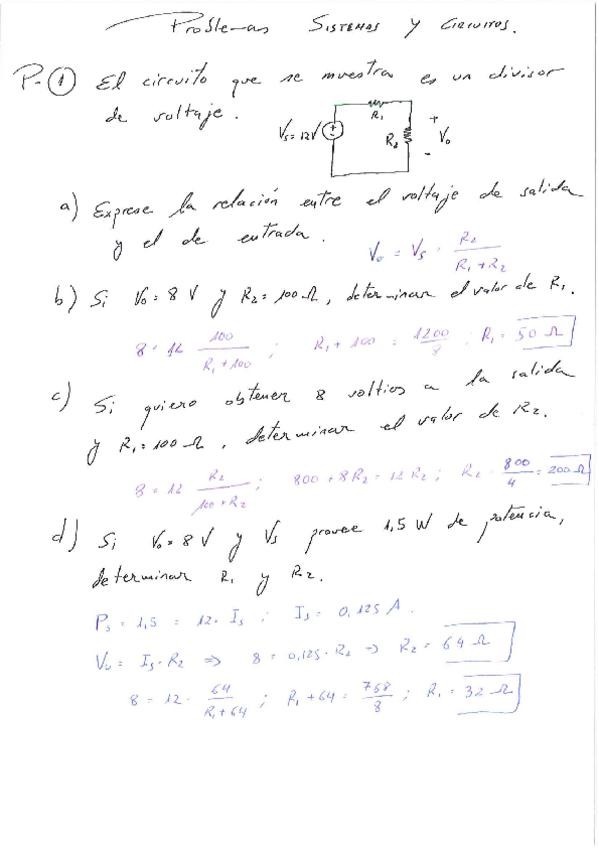 Problemas Sistemas y Circuitos.
P-1 El circuito que se muestra es un divisor
de voltaje.
Vs=12V + - R1 R2 + Vo -
a) Exprese la relación entre el voltaje de salida
y el de entrada. Vo = Vs · R2 / (R1+R2)
b) Si Vo=8 V y R2=100 Ω, determinar el valor de R1.
8 = 12 100 / (R1+100) ; R1+100 = 1200/8 ; R1 = 50 Ω
c) Si quiero obtener 8 voltios a la salida
y R1=100 Ω, determinar el valor de R2.
8 = 12 R2 / (100+R2) ; 800+8R2 = 12 R2 ; R2 = 800/4 = 200 Ω
d) Si Vo=8 V y Vs provee 1,5 W de potencia,
determinar R1 y R2.
Ps = 1,5 = 12 · Is ; Is = 0,125 A.
Vo = Is · R2 ⇒ 8 = 0,125 · R2 → R2 = 64 Ω
8 = 12 · 64 / (R1+64) ; R1+64 = 768/8 ; R1 = 32 Ω